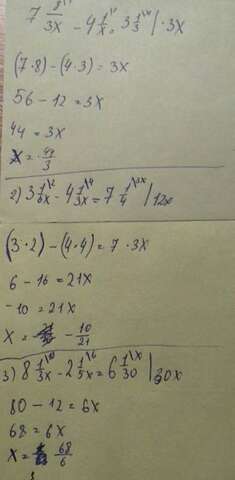 7 8/3x - 4 1/x = 3 1/3 | · 3x
(7·8) - (4·3) = 3x
56 - 12 = 3x
44 = 3x
x = 44/3
2) 3 1/6x - 4 1/3x = 7 1/4 | 12x
(3·2) - (4·4) = 7·3x
6 - 16 = 21x
-10 = 21x
x = -10/21
3) 8 1/3x - 2 1/5x = 6 1/30 | 30x
80 - 12 = 6x
68 = 6x
x = 68/6